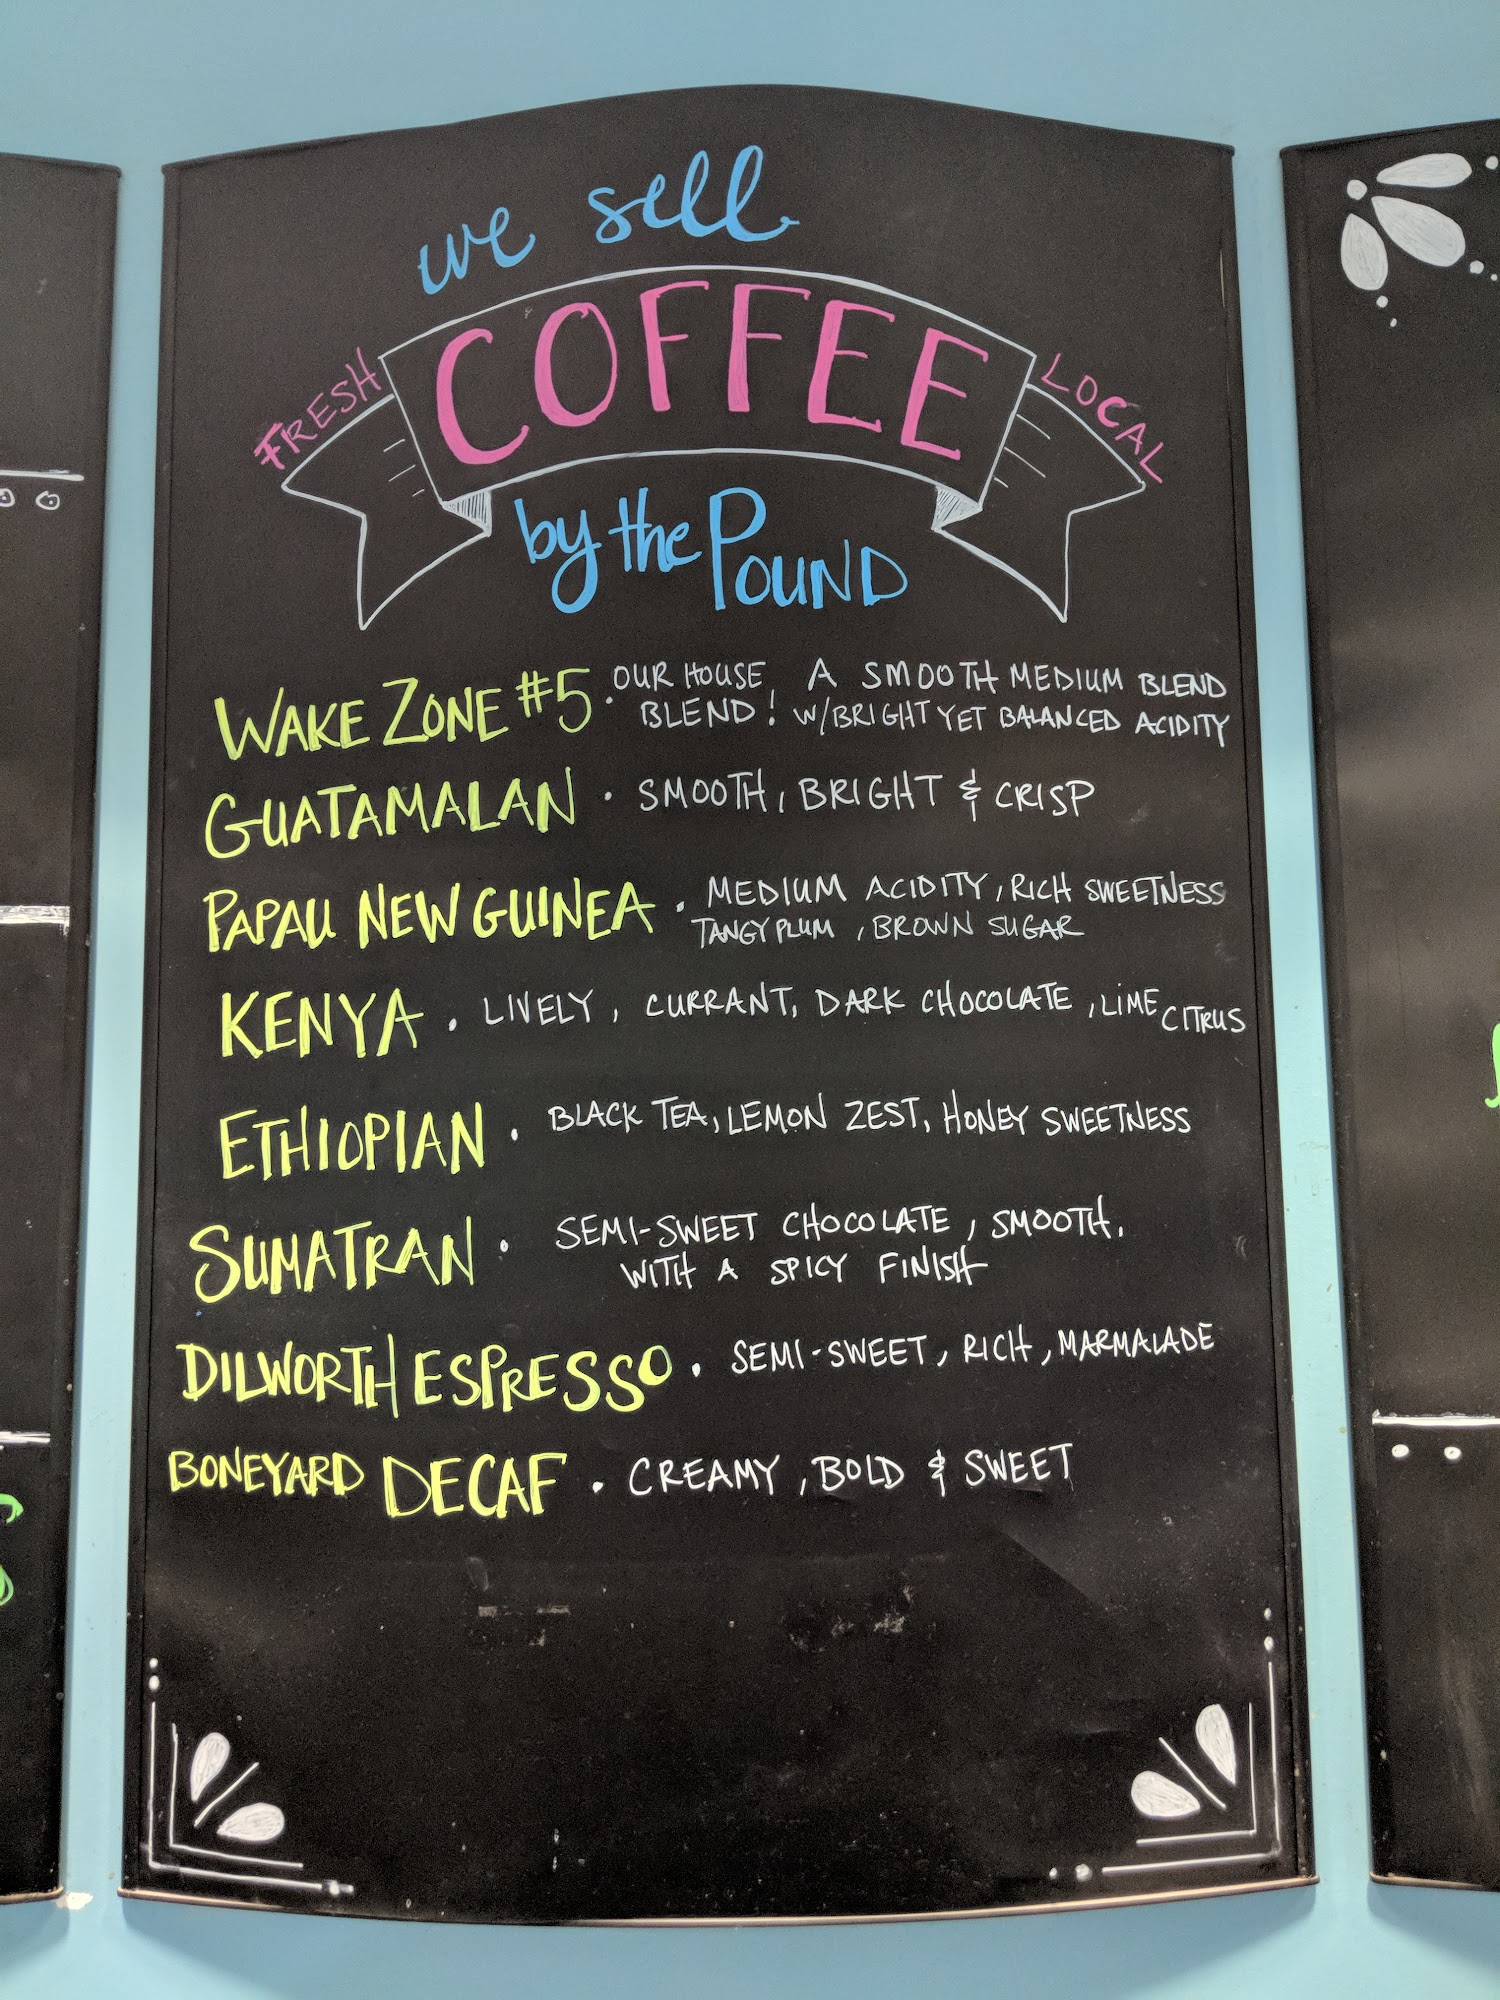 we sell
FRESH COFFEE LOCAL
by the POUND
WAKE ZONE #5 · OUR HOUSE BLEND! A SMOOTH MEDIUM BLEND
W/BRIGHT YET BALANCED ACIDITY
GUATAMALAN · SMOOTH, BRIGHT & CRISP
PAPAU NEW GUINEA · MEDIUM ACIDITY, RICH SWEETNESS
TANGY PLUM, BROWN SUGAR
KENYA · LIVELY, CURRANT, DARK CHOCOLATE, LIME CITRUS
ETHIOPIAN · BLACK TEA, LEMON ZEST, HONEY SWEETNESS
SUMATRAN · SEMI-SWEET CHOCOLATE, SMOOTH,
WITH A SPICY FINISH
DILWORTH ESPRESSO · SEMI-SWEET, RICH, MARMALADE
BONEYARD DECAF · CREAMY, BOLD & SWEET